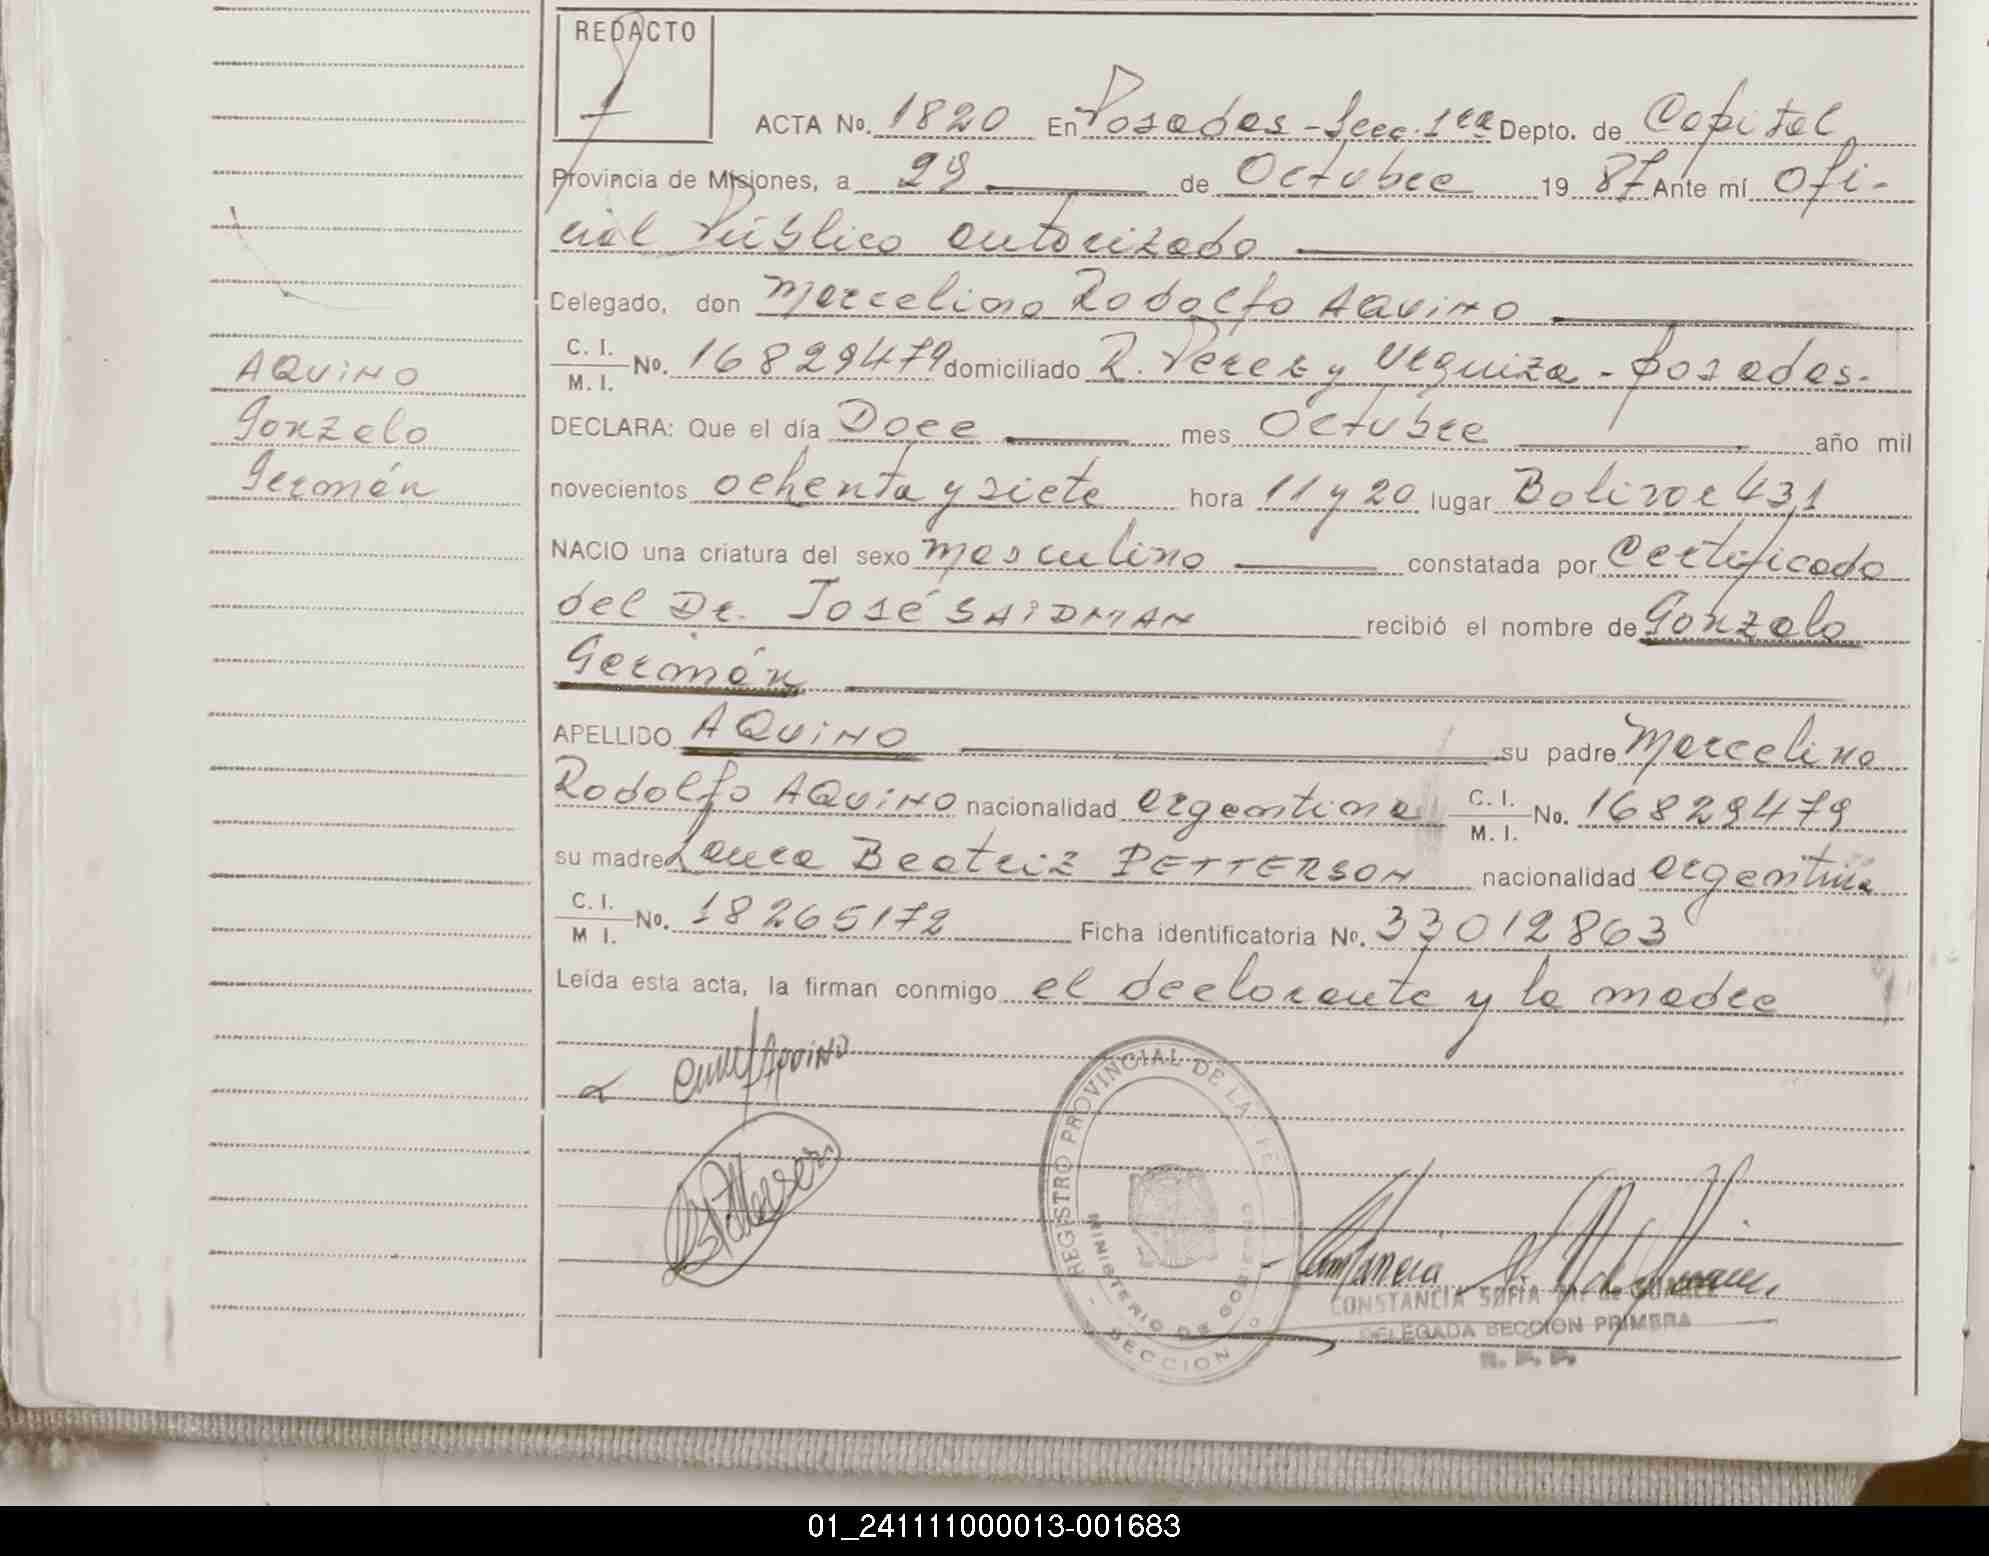 REDACTO
ACTA No. 1820 En Posadas - Secc. 1ra Depto. de Capital
Provincia de Misiones, a 29 de Octubre 19 87 Ante mí Ofi-
cial Público autorizado
Delegado, don Marcelino Rodolfo AQUINO
C. I.
M. I. No. 16829479 domiciliado R. Perez y Urquiza - Posadas.
AQUINO
Gonzalo
Germán
DECLARA: Que el día Doce mes Octubre año mil
novecientos ochenta y siete hora 11 y 20 lugar Bolivar 431
NACIO una criatura del sexo masculino constatada por Certificado
del Dr. José SAIDMAN recibió el nombre de Gonzalo
Germán
APELLIDO AQUINO su padre Marcelino
Rodolfo AQUINO nacionalidad argentina C. I.
M. I. No. 16829479
su madre Laura Beatriz PETTERSON nacionalidad argentina
C. I.
M I. No. 18265172 Ficha identificatoria No. 33012863
Leída esta acta, la firman conmigo el declarante y la madre
AQUINO
REGISTRO PROVINCIAL DE LA
MINISTERIO DE GOBIERNO
SECCION
CONSTANCIA SOFIA
DELEGADA SECCION PRIMERA
R. P. P.
01_241111000013-001683